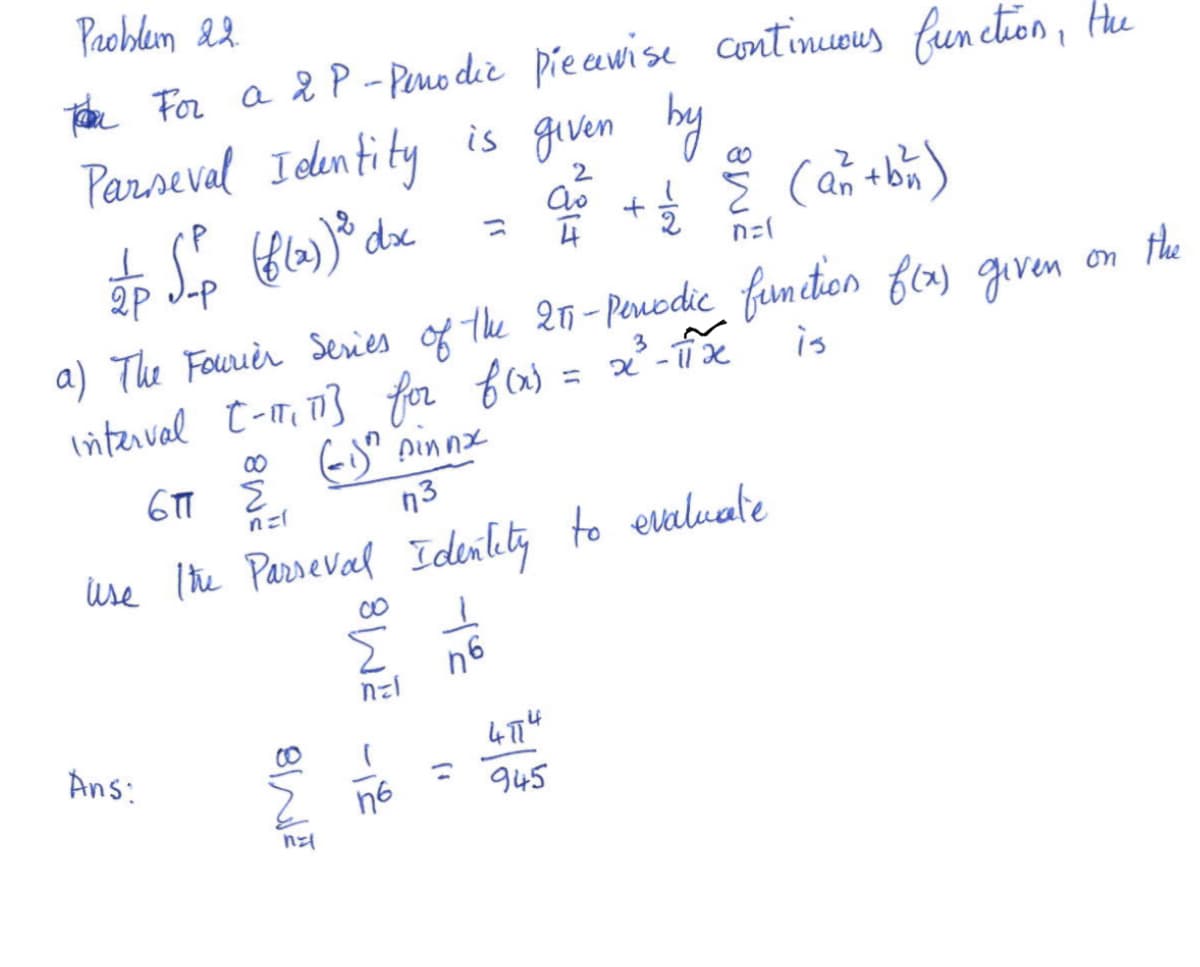 Problem 22.
For a 2P-Periodic piecewise continuous function, the
Parseval Identity is given by
1/2P ∫_{-P}^{P} (f(x))² dx = a₀²/4 + 1/2 Σ_{n=1}^{∞} (aₙ² + bₙ²)
a) The Fourier Series of the 2π-Periodic function f(x) given on the
interval [-π, π] for f(x) = x³ - πx is
6π Σ_{n=1}^{∞} (-1)ⁿ sin nx / n³
use the Parseval Identity to evaluate
Σ_{n=1}^{∞} 1/n⁶
Ans: Σ_{n=1}^{∞} 1/n⁶ = 4π⁴/945